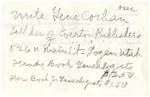 over
Write Gene Cochan
Gilder @ Everton Publishers
526 N Main St Logan Utah
Handy Book Genealogists
$7.50
How Book for Genealogists $1.50